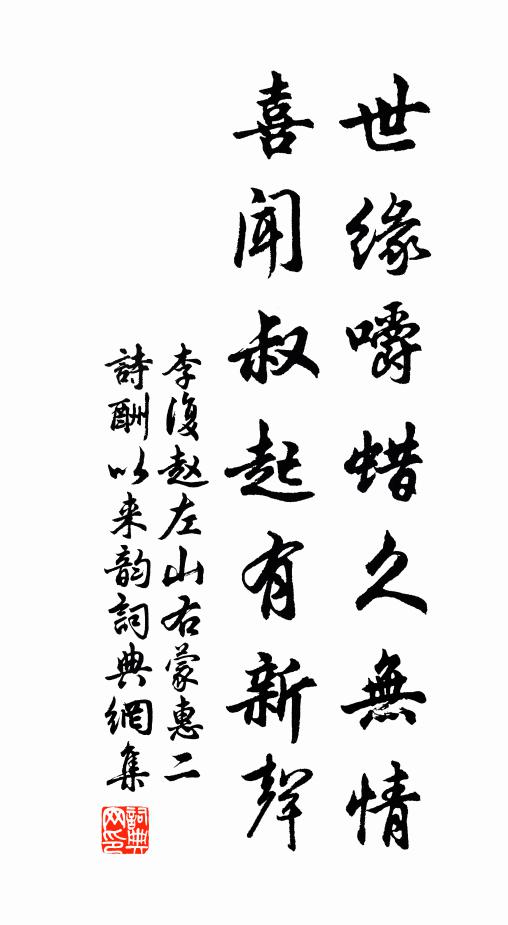 世緣嚼蜡久無情
喜聞叔起有新聲
李復赵左山右蒙惠二
詩酬以来韵詞典網集
詞典网印